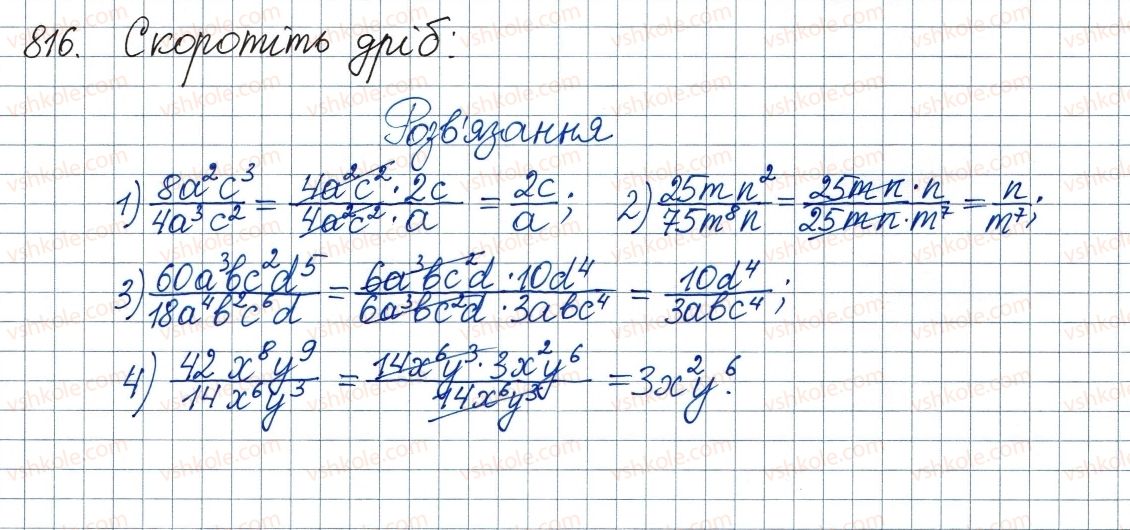 816. Скоротіть дріб:
Розв'язання
1) 8a²c³/4a³c² = 4a²c²·2c/4a²c²·a = 2c/a; 2) 25mn²/75m⁸n = 25mn·n/25mn·m⁷ = n/m⁷;
3) 60a³bc²d⁵/18a⁴b²c⁶d = 6a³bc²d·10d⁴/6a³bc²d·3abc⁴ = 10d⁴/3abc⁴;
4) 42x⁸y⁹/14x⁶y³ = 14x⁶y³·3x²y⁶/14x⁶y³ = 3x²y⁶.